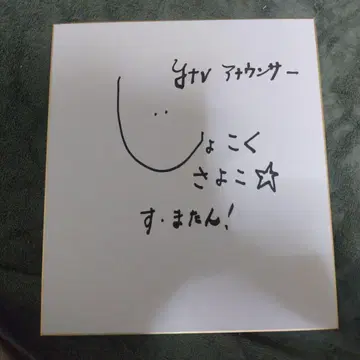 ytv アナウンサー
しょこく
さよこ☆
す・またん!